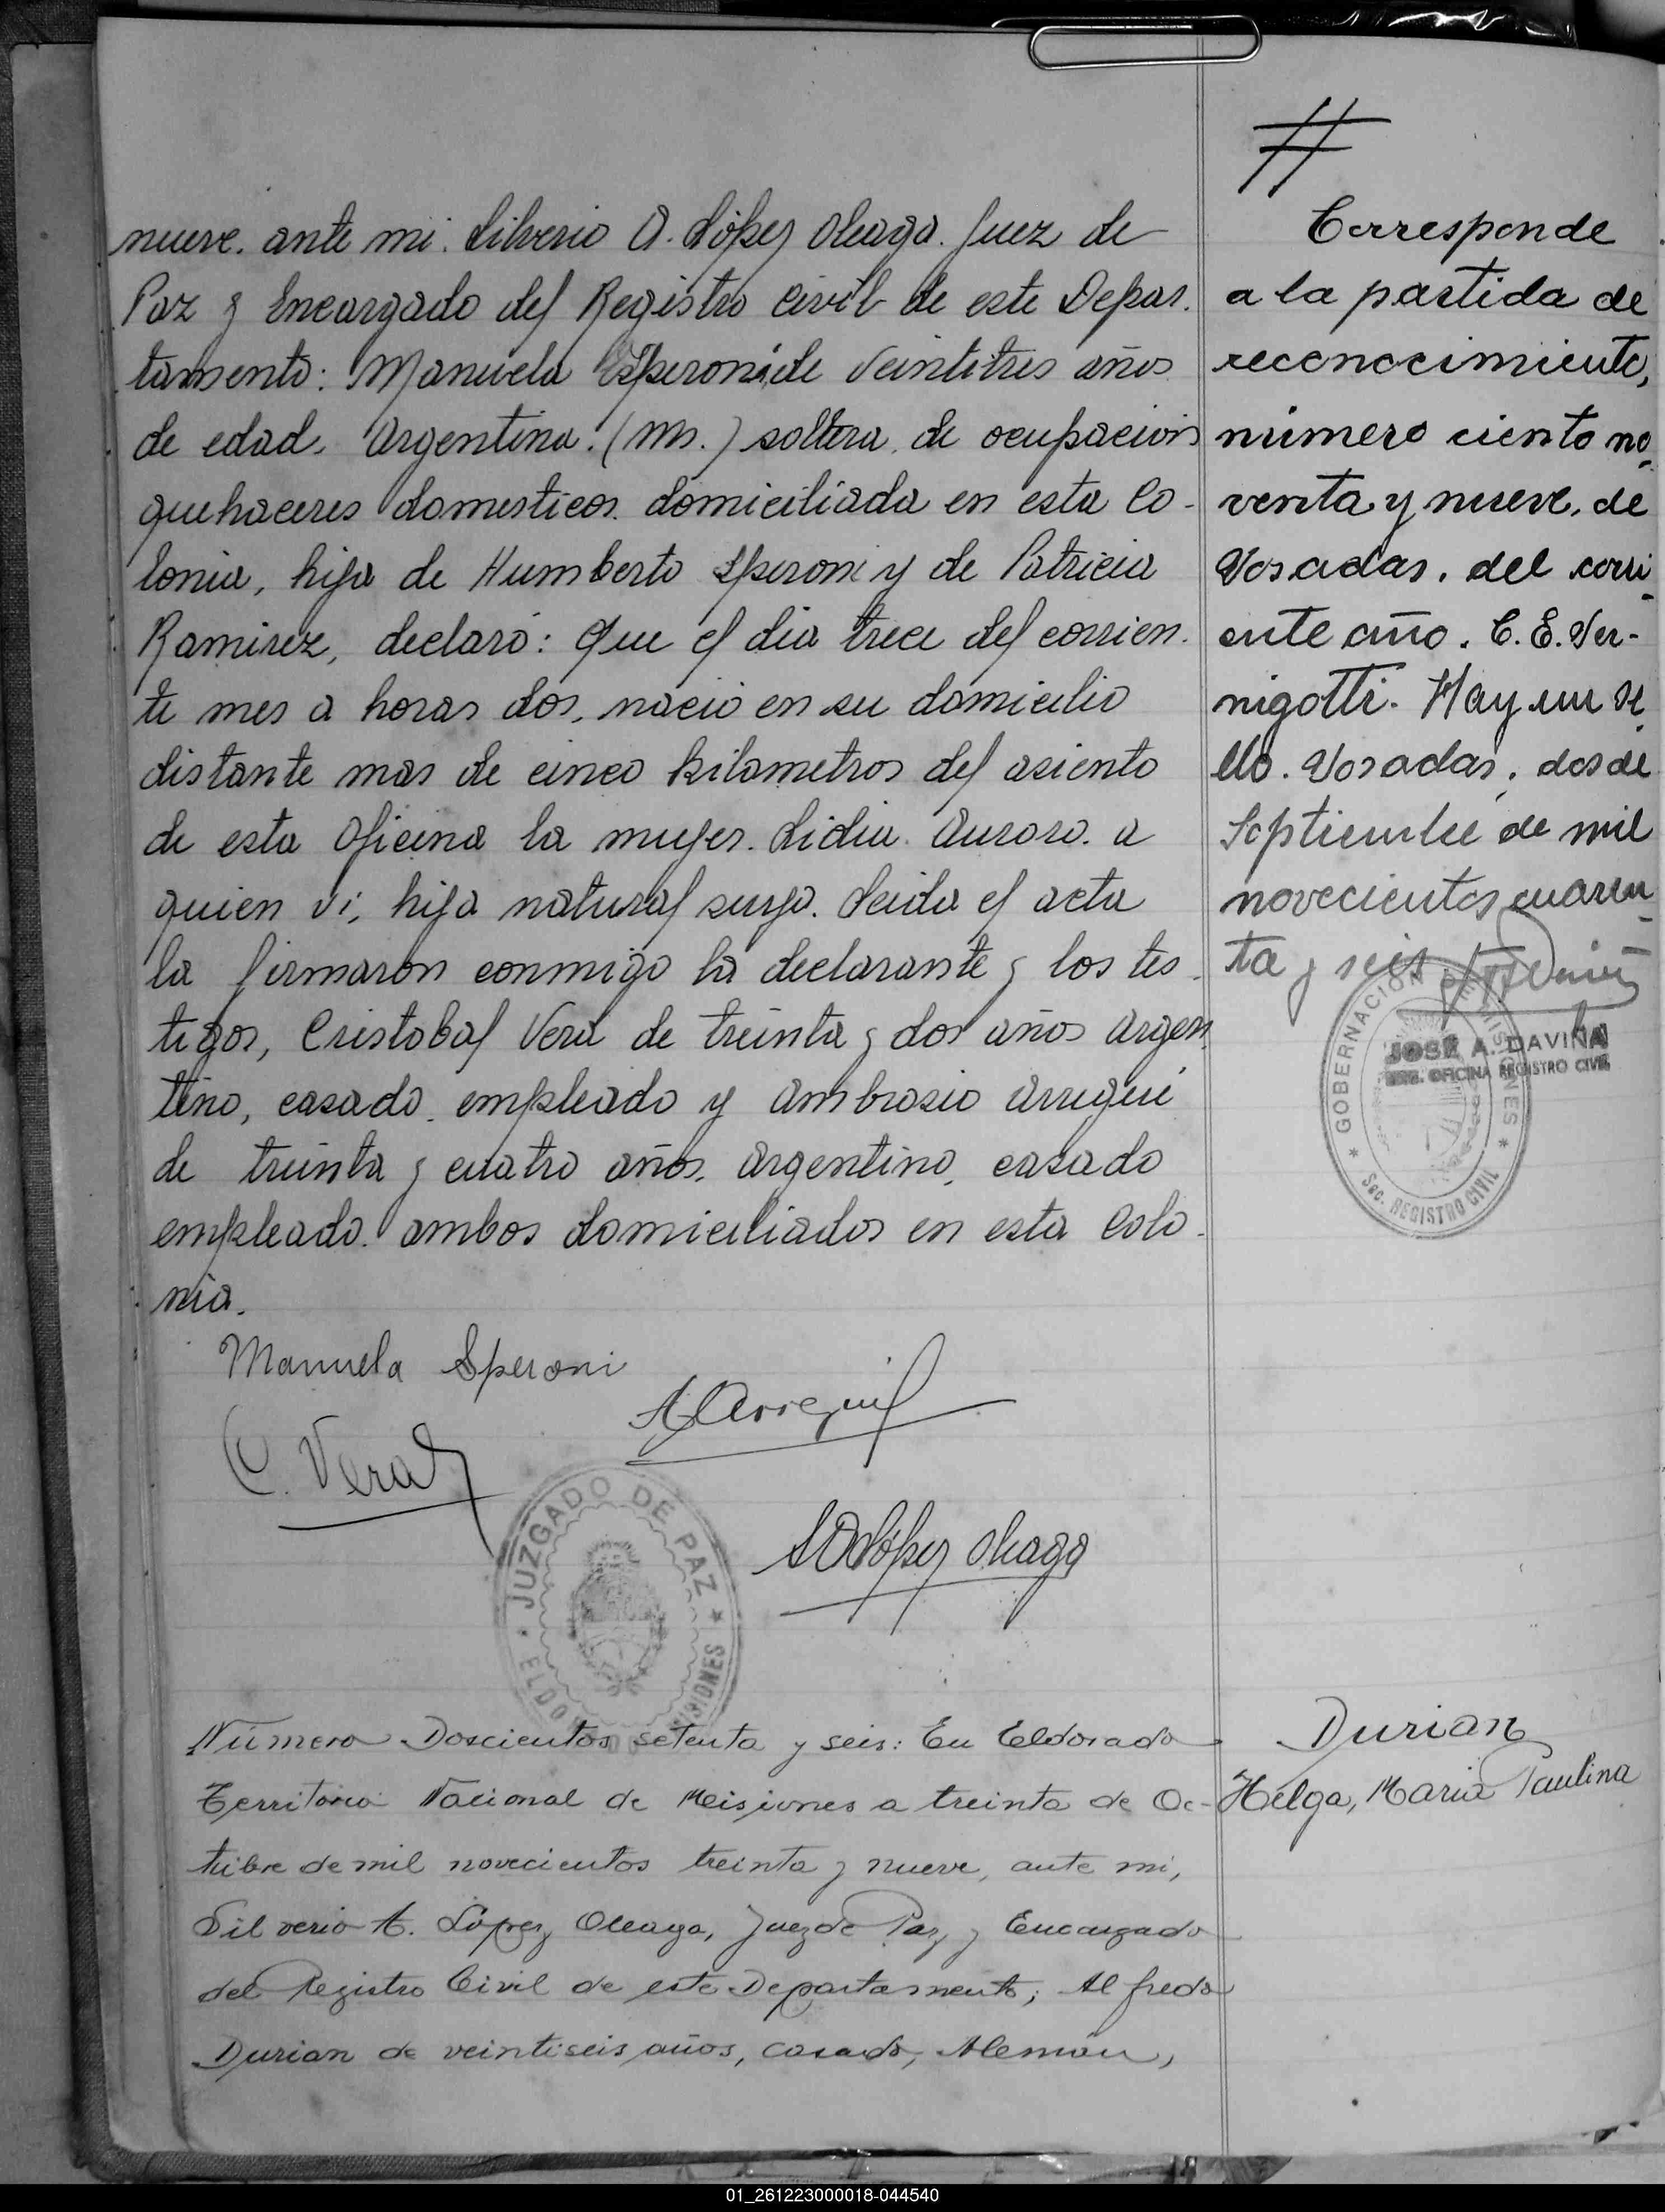 nueve. ante mi. Silverio A. López Oleaga. Juez de
Paz y Encargado del Registro civil de este Depar.
tamento: Manuela Speroni de veintitres años
de edad, Argentina. (Ms.) soltera, de ocupacion
quehaceres domesticos. domiciliada en esta Co-
lonia, hija de Humberto Speroni y de Patricia
Ramirez, declaró: Que el dia trece del corrien.
te mes a horas dos, nació en su domicilio
distante mas de cinco kilometros del asiento
de esta Oficina la mujer. Lidia Aurora. a
quien vi, hija natural suya. Leida el acta
la firmaron conmigo la declarante y los tes.
tigos, Cristobal Vera de treinta y dos años Argen.
tino, casado, empleado y Ambrosio Arregui
de treinta y cuatro años, Argentino, casado
empleado. ambos domiciliados en esta Colo.
nia.
Manuela Speroni
A Arregui
C. Vera
S A López Oleaga
JUZGADO DE PAZ
MISIONES
#
Corresponde
a la partida de
reconocimiento,
número ciento no-
venta y nueve, de
Posadas, del corri-
ente año. C. E. Ver-
nigotti. Hay un se-
llo. Posadas, dos de
Septiembre de mil
novecientos cuaren-
ta y seis
GOBERNACION DE MISIONES
JOSE A. DAVIÑA
OFICINA REGISTRO CIVIL
Sec. REGISTRO CIVIL
Número Doscientos setenta y seis: En Eldorado
Territorio Nacional de Misiones a treinta de Oc-
tubre de mil novecientos treinta y nueve, ante mi,
Silverio A. López Oleaga, Juez de Paz y Encargado
del Registro Civil de este Departamento; Alfredo
Durian de veintiseis años, casado, Aleman,
Durian
Helga, Maria Paulina
01_261223000018-044540